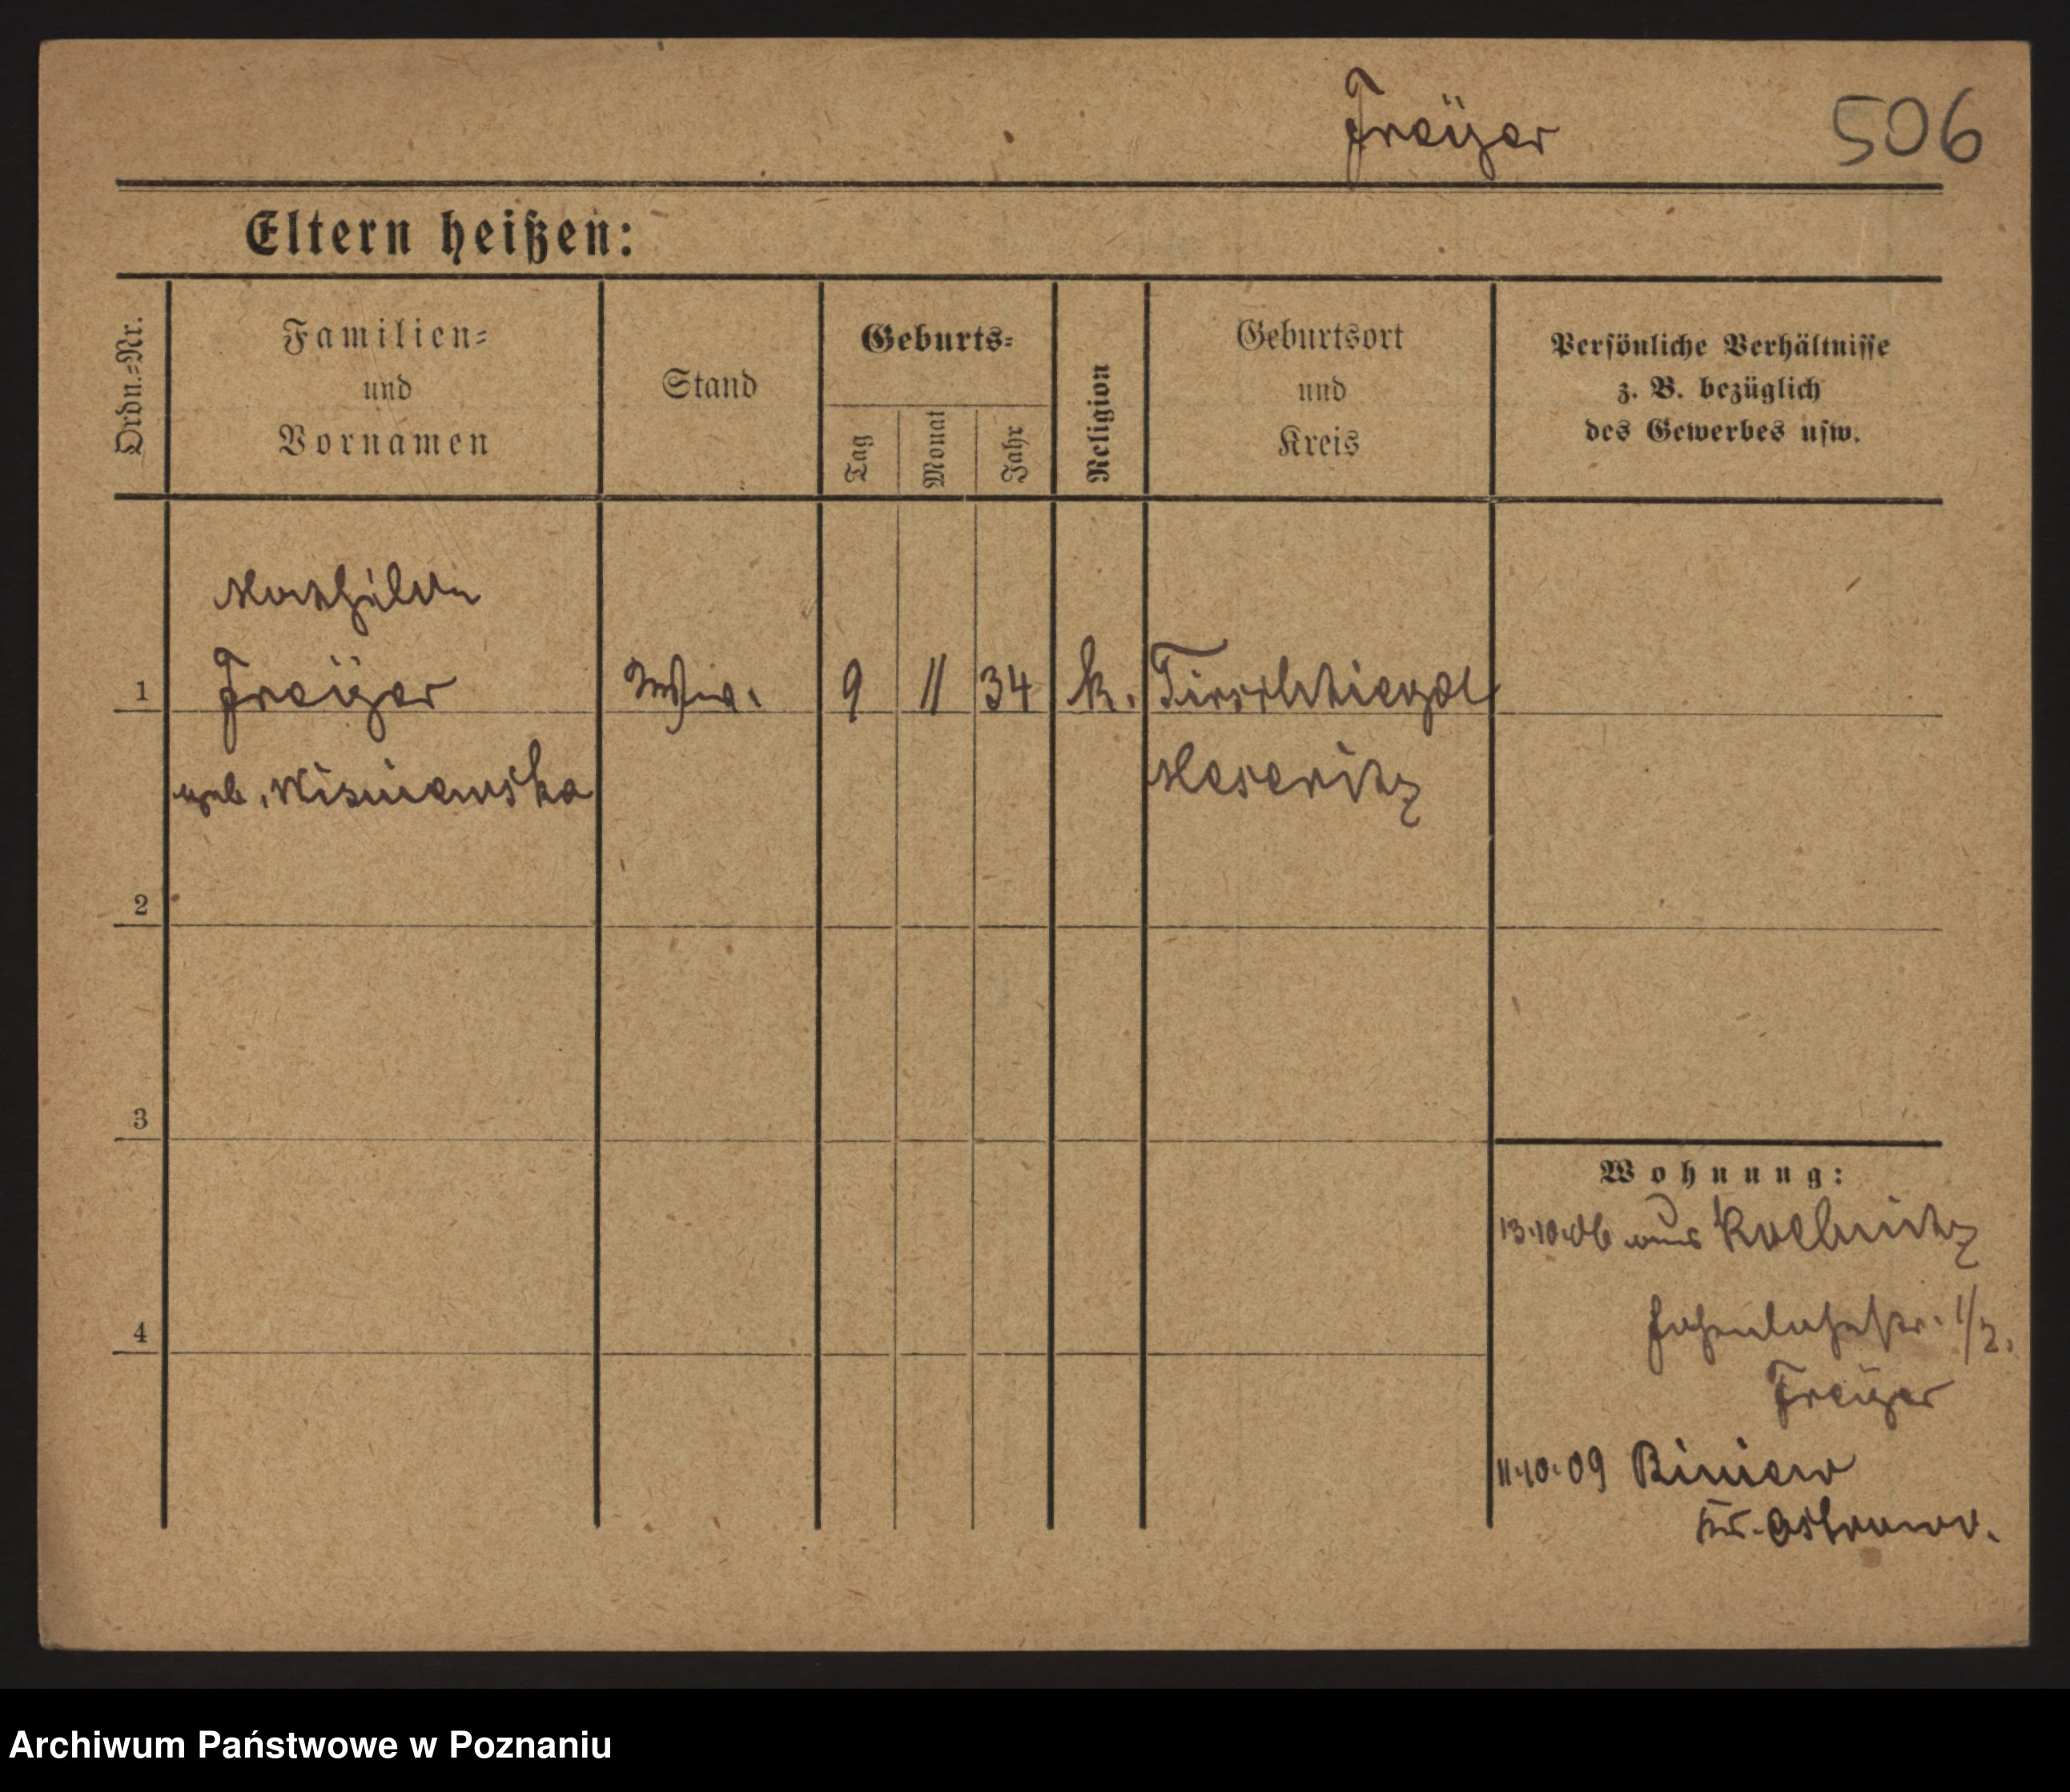 Freÿer 506
Eltern heißen:
Ordn.-Nr.
Familien-
und
Vornamen
Stand
Geburts-
Tag
Monat
Jahr
Religion
Geburtsort
und
Kreis
Persönliche Verhältnisse
z. B. bezüglich
des Gewerbes usw.
Mathilde
1 Freÿer Wwe. 9 11 34 k. Tirschtiegel
geb. Wisniewska Meseritz
2
3
4
Wohnung:
13.10.06 aus Koelnitz
Hohenlohestr. 1/2.
Freÿer
11.10.09 Biniew
Kr. Ostrowo.
Archiwum Państwowe w Poznaniu